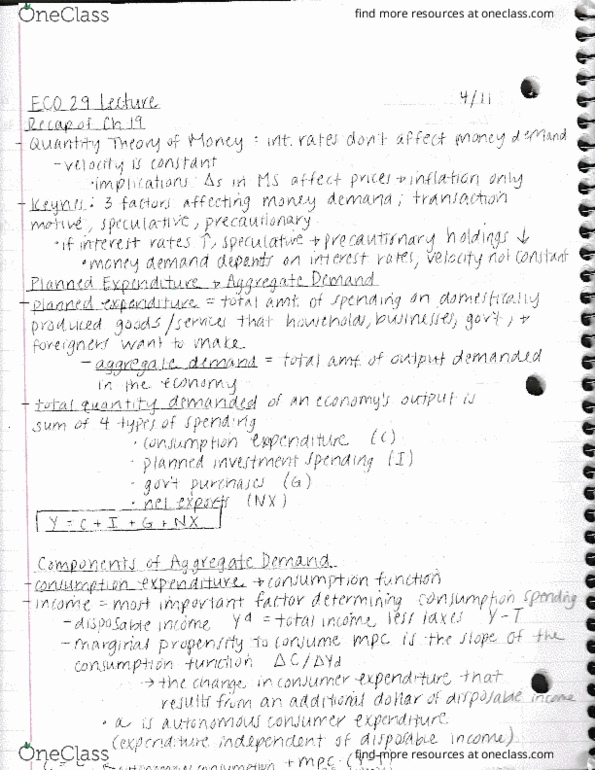 OneClass
find more resources at oneclass.com
ECO 29 Lecture 4/11
Recap of Ch 19
- Quantity Theory of Money = int. rates don't affect money demand
- velocity is constant
• implications: Δs in MS affect prices + inflation only
- Keynes: 3 factors affecting money demand; transaction
motive, speculative, precautionary
• if interest rates ↑, speculative + precautionary holdings ↓
• money demand depends on interest rates, velocity not constant
Planned Expenditure + Aggregate Demand
- planned expenditure = total amt. of spending on domestically
produced goods/services that households, businesses, gov't, +
foreigners want to make
- aggregate demand = total amt. of output demanded
in the economy
- total quantity demanded of an economy's output is
sum of 4 types of spending
• consumption expenditure (C)
• planned investment spending (I)
• gov't purchases (G)
• net exports (NX)
Y = C + I + G + NX
Components of Aggregate Demand
- consumption expenditure + consumption function
- income = most important factor determining consumption spending
- disposable income Yd = total income less taxes Y - T
- marginial propensity to consume mpc is the slope of the
consumption function ΔC/ΔYd
→ the change in consumer expenditure that
results from an additional dollar of disposable income
• a is autonomous consumer expenditure
(expenditure independent of disposable income)
consumption + mpc
OneClass
find more resources at oneclass.com